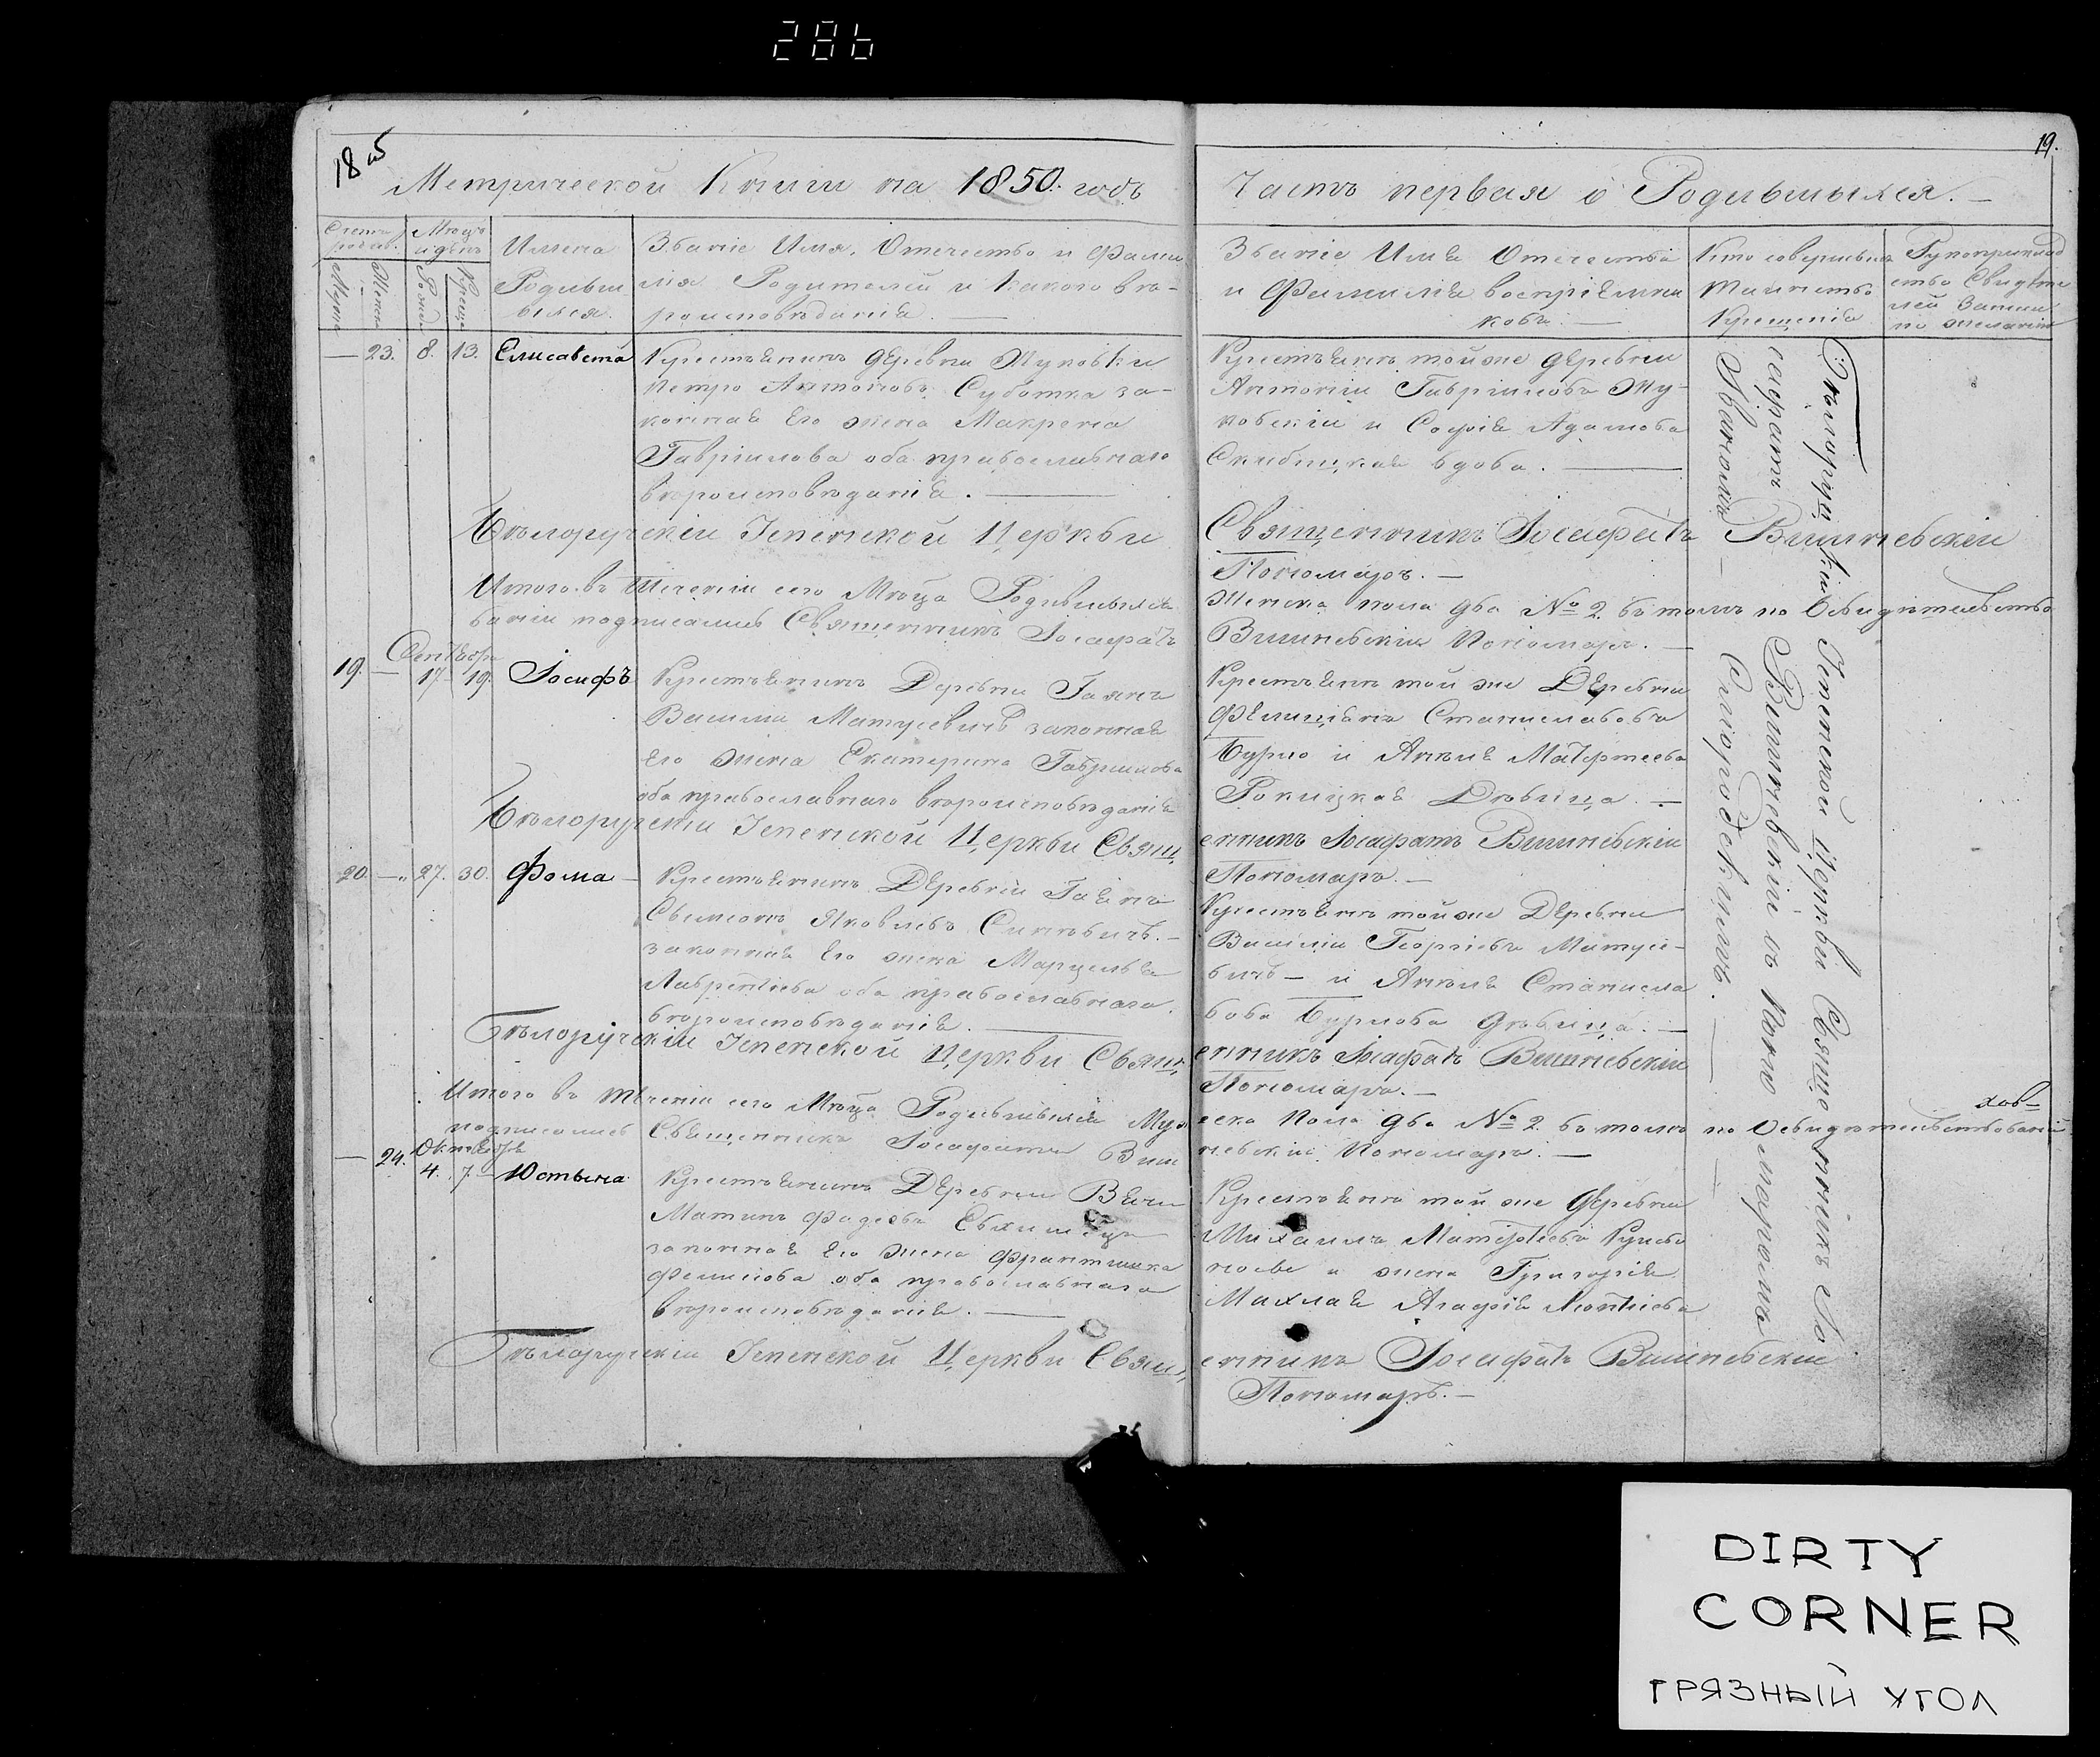 286
18 об
19.
Метрической Книги на 1850. годъ
Часть первая о Родившихся.
Счетъ родив. Мѣсяцъ и день Имена Родившихся. Званіе Имя, Отчество и Фамилія Родителей и Какого вѣроисповѣданія.
Мужеск Женск Рожд Крещ
Званіе Имя Отчество и Фамилія воспріемниковъ.
Кто совершилъ таинство Крещенія
Рукоприкладство Свидѣтелей записи по желанію
— 23. 8. 13. Елисавета
Крестьянинъ деревни Жуковки
Петро Антоновъ Суботка за-
конная его жена Макрена
Гавріилова оба православнаго
вѣроисповѣданія.
Крестьянинъ той же деревни
Антоній Гавріиловъ Жу-
ковскій и Софія Адамова
Скибицкая вдова.
Бѣлоручскій Успенской Церкви Священникъ Іосафатъ Вишневскій
Пономарь.
Итого въ теченіи сего Мѣсяца Родившихся
Женска пола два № 2. въ томъ по Освидѣтельство
ваніи подписались Священникъ Іосафатъ
Вишневскій Пономарь.
Сентября
19. — 17 19. Іосифъ
Крестьянинъ Деревни Гаянъ
Василій Матусевичъ законная
его жена Екатерина Гавриилова
оба православнаго вѣроисповѣданія
Крестьянинъ той же Деревни
Фелиціянъ Станиславовъ
Бурно и Анна Матфеева
Рокицкая Дѣвица.
Бѣлоручскій Успенской Церкви Священникъ Іосафатъ Вишневскій
Пономарь.
20. — 27. 30. Фома
Крестьянинъ Деревни Гаянъ
Свимонъ Яковлевъ Синкевичъ.
законная его жена Марцелля
Лаврентіева оба православнаго
вѣроисповѣданія.
Крестьянинъ той же Деревни
Василій Георгіевъ Матусе-
вичъ — и Анна Станисла
вова Бурнова дѣвица.
Бѣлоручскій Успенской Церкви Священникъ Іосафатъ Вишневскій
Пономарь.
Итого въ теченіи сего Мѣсяца Родившихся Муж
еска Пола два № 2. въ томъ по Освидѣтельствованіи
подписались Священникъ Іосафатъ Виш
невскій Пономарь.
Октября
— 24. 4. 7. Юстына
Крестьянинъ Деревни
законная его жена Францишка
оба православнаго
вѣроисповѣданія.
Крестьянинъ той же деревни
Михаилъ Матфѣевъ
и жена Григорія
Агафія Леонтіева
Бѣлоручскій Успенской Церкви Священникъ Іосафатъ Вишневскій
Пономарь.
Бѣлоручскій Успенской Церкви Священникъ Іо
сафатъ Вишневскій съ Пономаремъ
DIRTY
CORNER
ГРЯЗНЫЙ УГОЛ